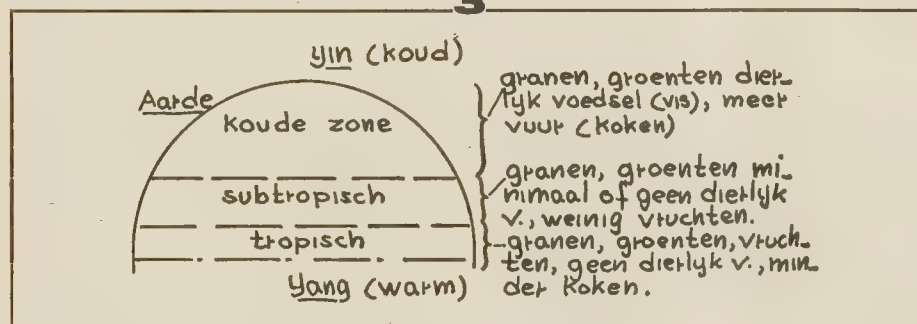 3
yin (koud)
Aarde
koude zone
subtropisch
tropisch
Yang (warm)
granen, groenten dier-
lijk voedsel (vis), meer
vuur (koken)
granen, groenten mi-
nimaal of geen dierlijk
v., weinig vruchten.
granen, groenten, vruch-
ten, geen dierlijk v., min-
der koken.